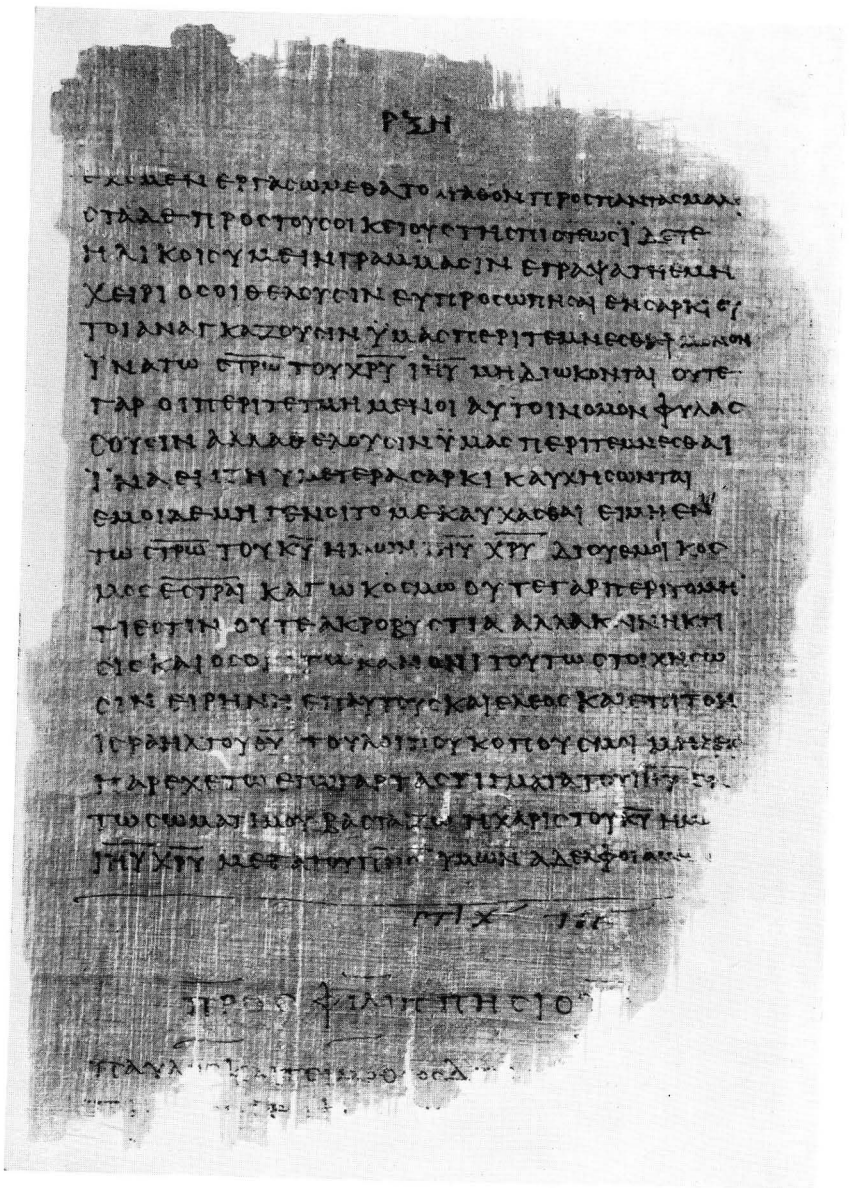 ΡΞΗ
ΕΧΟΜΕΝ ΕΡΓΑΣΩΜΕΘΑ ΤΟ ΑΓΑΘΟΝ ΠΡΟΣ ΠΑΝΤΑΣ
ΣΤΑ ΔΕ ΠΡΟΣ ΤΟΥΣ ΟΙΚΕΙΟΥΣ ΤΗΣ ΠΙΣΤΕΩΣ ΪΔΕΤΕ
ΗΛΙΚΟΙΣ ΥΜΕΙΝ ΓΡΑΜΜΑΣΙΝ ΕΓΡΑΨΑ ΤΗ ΕΜΗ
ΧΕΙΡΙ ΟΣΟΙ ΘΕΛΟΥΣΙΝ ΕΥΠΡΟΣΩΠΗΣΑΙ ΕΝ ΣΑΡΚΙ ΟΥ
ΤΟΙ ΑΝΑΓΚΑΖΟΥΣΙΝ ΫΜΑΣ ΠΕΡΙΤΕΜΝΕΣΘΑΙ ΜΟΝΟΝ
ΪΝΑ ΤΩ Σ̅Τ̅Ρ̅Ω̅ ΤΟΥ Χ̅Ρ̅Υ̅ Ι̅Η̅Υ̅ ΜΗ ΔΙΩΚΟΝΤΑΙ ΟΥΤΕ
ΓΑΡ ΟΙ ΠΕΡΙΤΕΤΜΗΜΕΝΟΙ ΑΥΤΟΙ ΝΟΜΟΝ ΦΥΛΑΣ
ΣΟΥΣΙΝ ΑΛΛΑ ΘΕΛΟΥΣΙΝ ΫΜΑΣ ΠΕΡΙΤΕΜΝΕΣΘΑΙ
ΪΝΑ ΕΝ ΤΗ ΥΜΕΤΕΡΑ ΣΑΡΚΙ ΚΑΥΧΗΣΩΝΤΑΙ
ΕΜΟΙ ΔΕ ΜΗ ΓΕΝΟΙΤΟ ΜΕ ΚΑΥΧΑΣΘΑΙ ΕΙ ΜΗ ΕΝ
ΤΩ Σ̅Τ̅Ρ̅Ω̅ ΤΟΥ Κ̅Υ̅ ΗΜΩΝ Ι̅Η̅Υ̅ Χ̅Ρ̅Υ̅ ΔΙ ΟΥ ΕΜΟΙ ΚΟΣ
ΜΟΣ Ε̅Σ̅Τ̅Ρ̅Α̅Ι̅ ΚΑΓΩ ΚΟΣΜΩ ΟΥΤΕ ΓΑΡ ΠΕΡΙΤΟΜΗ
ΤΙ ΕΣΤΙΝ ΟΥΤΕ ΑΚΡΟΒΥΣΤΙΑ ΑΛΛΑ ΚΑΙΝΗ ΚΤΙ
ΣΙΣ ΚΑΙ ΟΣΟΙ ΤΩ ΚΑΝΟΝΙ ΤΟΥΤΩ ΣΤΟΙΧΗΣΩ
ΣΙΝ ΕΙΡΗΝΗ ΕΠ ΑΥΤΟΥΣ ΚΑΙ ΕΛΕΟΣ ΚΑΙ ΕΠΙ ΤΟΝ
ΙΣΡΑΗΛ ΤΟΥ Θ̅Υ̅ ΤΟΥ ΛΟΙΠΟΥ ΚΟΠΟΥΣ ΜΟΙ
ΠΑΡΕΧΕΤΩ ΕΓΩ ΓΑΡ ΤΑ ΣΤΙΓΜΑΤΑ ΤΟΥ Ι̅Η̅Υ̅ ΕΝ
ΤΩ ΣΩΜΑΤΙ ΜΟΥ ΒΑΣΤΑΖΩ Η ΧΑΡΙΣ ΤΟΥ Κ̅Υ̅
Ι̅Η̅Υ̅ Χ̅Ρ̅Υ̅ ΜΕΤΑ ΤΟΥ Π̅Ν̅Σ̅ ΥΜΩΝ ΑΔΕΛΦΟΙ ΑΜΗΝ
ΣΤΙΧ
ΠΡΟΣ ΦΙΛΙΠΠΗΣΙΟΥ
ΠΑΥΛΟΣ ΚΑΙ ΤΕΙΜΟΘΕΟΣ Δ